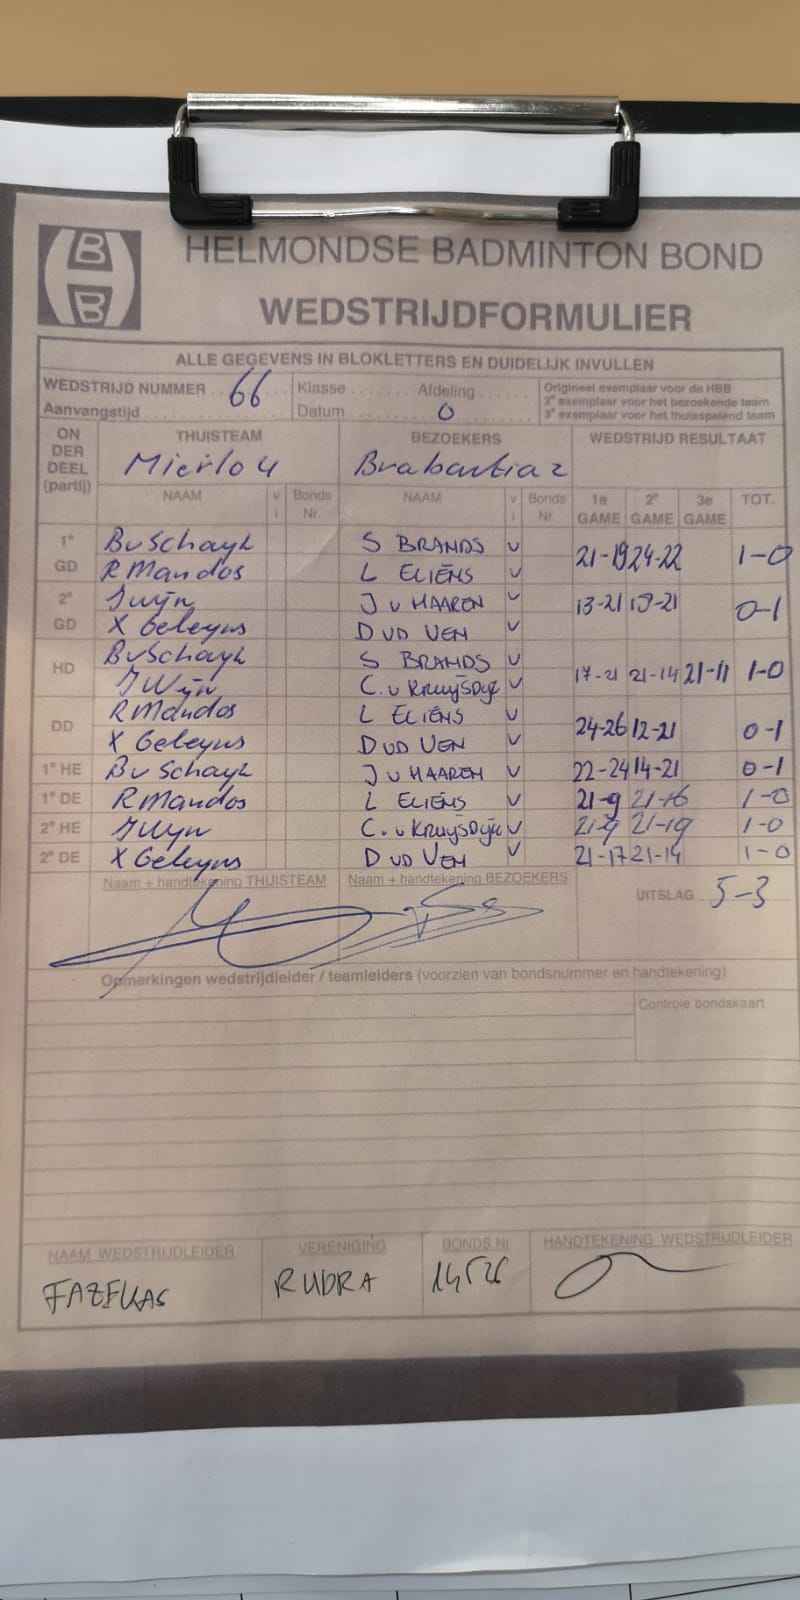 HBB
HELMONDSE BADMINTON BOND
WEDSTRIJDFORMULIER
ALLE GEGEVENS IN BLOKLETTERS EN DUIDELIJK INVULLEN
WEDSTRIJD NUMMER 66 Klasse Afdeling Origineel exemplaar voor de HBB
2e exemplaar voor het bezoekende team
Aanvangstijd Datum 0 3e exemplaar voor het thuisspelend team
ON DER DEEL (partij) THUISTEAM BEZOEKERS WEDSTRIJD RESULTAAT
Mierlo 4 Brabantia 2
NAAM v i Bonds Nr. NAAM v i Bonds Nr. 1e GAME 2e GAME 3e GAME TOT.
1e BvSchayk S BRANDS v 21-19 24-22 1-0
GD R Mandos L ELIËNS v
2e J Wijn J v HAAREN v 13-21 19-21 0-1
GD X Geleyns D VD VEN v
HD BvSchayk S BRANDS v 17-21 21-14 21-11 1-0
J Wijn C. v Kruijsdijk v
DD R Mandos L ELIËNS v 24-26 12-21 0-1
X Geleyns D VD VEN v
1e HE Bv Schayk J v HAAREN v 22-24 14-21 0-1
1e DE R Mandos L ELIËNS v 21-9 21-16 1-0
2e HE J Wijn C. v Kruijsdijk v 21-9 21-19 1-0
2e DE X Geleyns D VD VEN v 21-17 21-14 1-0
Naam + handtekening THUISTEAM Naam + handtekening BEZOEKERS UITSLAG 5-3
Opmerkingen wedstrijdleider / teamleiders (voorzien van bondsnummer en handtekening)
Controle bondskaart
NAAM WEDSTRIJDLEIDER VERENIGING BONDS Nr HANDTEKENING WEDSTRIJDLEIDER
FAZEKAS RUDRA 14526